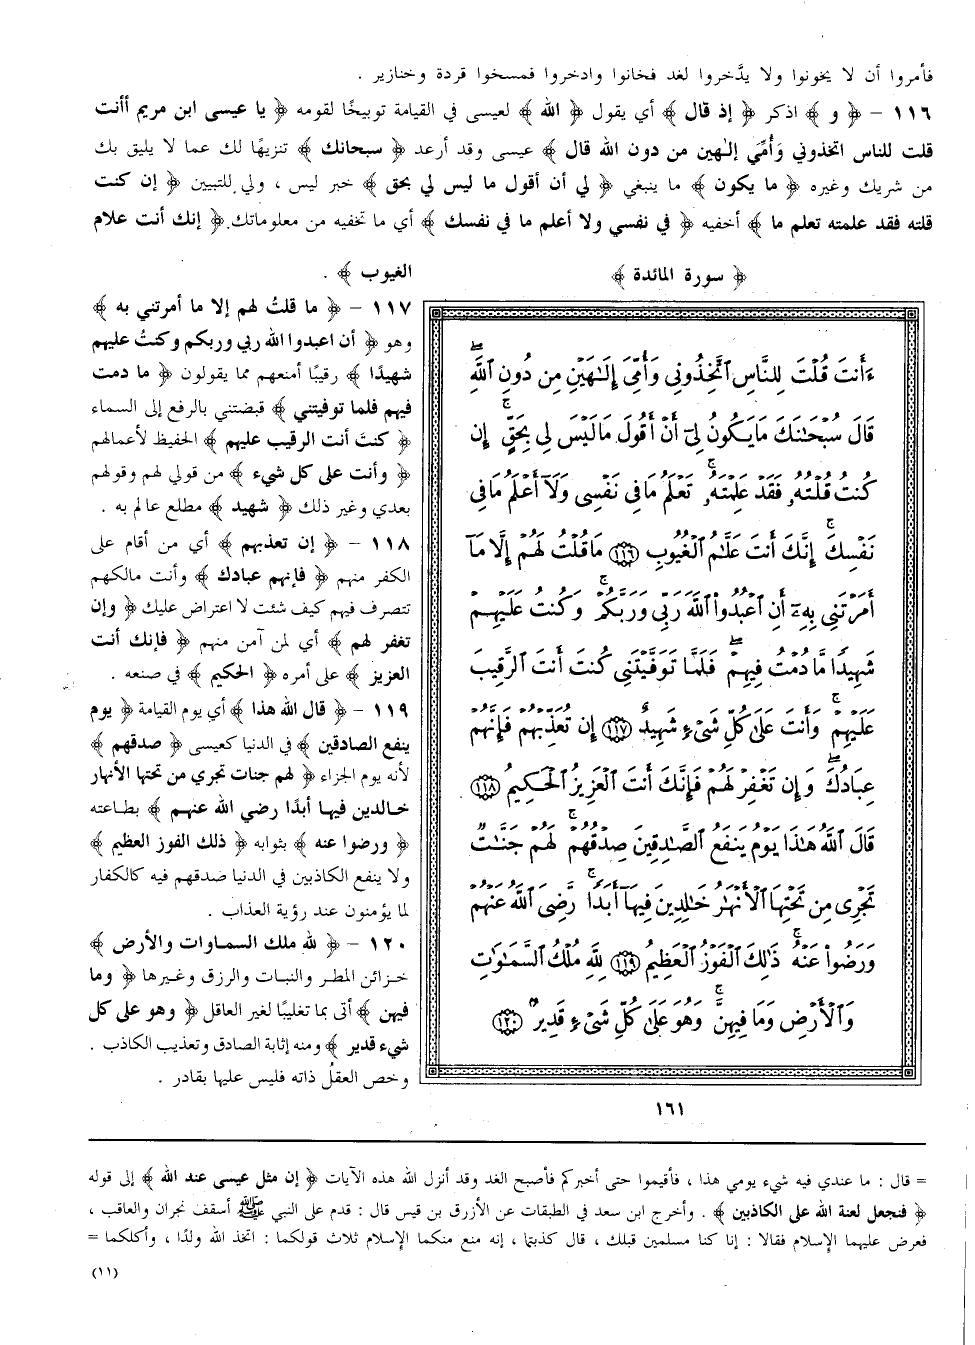 فأمروا أن لا يخونوا ولا يدَّخروا لغد فخانوا وادخروا فمسخوا قردة وخنازير .
١١٦ - ﴿ و ﴾ اذكر ﴿ إذ قال ﴾ أي يقول ﴿ الله ﴾ لعيسى في القيامة توبيخًا لقومه ﴿ يا عيسى ابن مريم أأنت
قلت للناس اتخذوني وَأُمّي إلـٰهين من دون الله قال ﴾ عيسى وقد أرعد ﴿ سبحانك ﴾ تنزيهًا لك عما لا يليق بك
من شريك وغيره ﴿ ما يكون ﴾ ما ينبغي ﴿ لي أن أقول ما ليس لي بحق ﴾ خبر ليس ، ولي للتبيين ﴿ إن كنت
قلته فقد علمته تعلم ما ﴾ أخفيه ﴿ في نفسي ولا أعلم ما في نفسك ﴾ أي ما تخفيه من معلوماتك ﴿ إنك أنت علام
الغيوب ﴾ .
١١٧ - ﴿ ما قلتُ لهم إلا ما أمرتني به ﴾
وهو ﴿ أن اعبدوا الله ربي وربكم وكنتُ عليهم
شهيدًا ﴾ رقيبًا أمنعهم مما يقولون ﴿ ما دمت
فيهم فلما توفيتني ﴾ قبضتني بالرفع إلى السماء
﴿ كنتَ أنت الرقيب عليهم ﴾ الحفيظ لأعمالهم
﴿ وأنت على كل شيء ﴾ من قولي لهم وقولهم
بعدي وغير ذلك ﴿ شهيد ﴾ مطلع عالم به .
١١٨ - ﴿ إن تعذبهم ﴾ أي من أقام على
الكفر منهم ﴿ فإنهم عبادك ﴾ وأنت مالكهم
تتصرف فيهم كيف شئت لا اعتراض عليك ﴿ وإن
تغفر لهم ﴾ أي لمن آمن منهم ﴿ فإنك أنت
العزيز ﴾ على أمره ﴿ الحكيم ﴾ في صنعه .
١١٩ - ﴿ قال الله هذا ﴾ أي يوم القيامة ﴿ يوم
ينفع الصادقين ﴾ في الدنيا كعيسى ﴿ صدقهم ﴾
لأنه يوم الجزاء ﴿ لهم جنات تجري من تحتها الأنهار
خالدين فيها أبدًا رضي الله عنهم ﴾ بطاعته
﴿ ورضوا عنه ﴾ بثوابه ﴿ ذلك الفوز العظيم ﴾
ولا ينفع الكاذبين في الدنيا صدقهم فيه كالكفار
لما يؤمنون عند رؤية العذاب .
١٢٠ - ﴿ لله ملك السماوات والأرض ﴾
خزائن المطر والنبات والرزق وغيرها ﴿ وما
فيهن ﴾ أتى بما تغليبًا لغير العاقل ﴿ وهو على كل
شيء قدير ﴾ ومنه إثابة الصادق وتعذيب الكاذب .
وخص العقلُ ذاته فليس عليها بقادر .
﴿ سورة المائدة ﴾
ءَأَنتَ قُلْتَ لِلنَّاسِ ٱتَّخِذُونِي وَأُمِّيَ إِلَـٰهَيْنِ مِن دُونِ ٱللَّهِۖ
قَالَ سُبْحَـٰنَكَ مَايَكُونُ لِيٓ أَنْ أَقُولَ مَا لَيْسَ لِي بِحَقٍّۚ إِن
كُنتُ قُلْتُهُۥ فَقَدْ عَلِمْتَهُۥۚ تَعْلَمُ مَا فِي نَفْسِي وَلَآ أَعْلَمُ مَا فِي
نَفْسِكَۚ إِنَّكَ أَنتَ عَلَّـٰمُ ٱلْغُيُوبِ ﴿١١٦﴾ مَا قُلْتُ لَهُمْ إِلَّا مَآ
أَمَرْتَنِي بِهِۦٓ أَنِ ٱعْبُدُوا۟ ٱللَّهَ رَبِّي وَرَبَّكُمْۚ وَكُنتُ عَلَيْهِمْ
شَهِيدًا مَّا دُمْتُ فِيهِمْۖ فَلَمَّا تَوَفَّيْتَنِي كُنتَ أَنتَ ٱلرَّقِيبَ
عَلَيْهِمْۚ وَأَنتَ عَلَىٰ كُلِّ شَيْءٍ شَهِيدٌ ﴿١١٧﴾ إِن تُعَذِّبْهُمْ فَإِنَّهُمْ
عِبَادُكَۖ وَإِن تَغْفِرْ لَهُمْ فَإِنَّكَ أَنتَ ٱلْعَزِيزُ ٱلْحَكِيمُ ﴿١١٨﴾
قَالَ ٱللَّهُ هَـٰذَا يَوْمُ يَنفَعُ ٱلصَّـٰدِقِينَ صِدْقُهُمْۚ لَهُمْ جَنَّـٰتٌ
تَجْرِي مِن تَحْتِهَا ٱلْأَنْهَـٰرُ خَـٰلِدِينَ فِيهَآ أَبَدًاۚ رَّضِيَ ٱللَّهُ عَنْهُمْ
وَرَضُوا۟ عَنْهُۚ ذَٰلِكَ ٱلْفَوْزُ ٱلْعَظِيمُ ﴿١١٩﴾ لِلَّهِ مُلْكُ ٱلسَّمَـٰوَٰتِ
وَٱلْأَرْضِ وَمَا فِيهِنَّۚ وَهُوَ عَلَىٰ كُلِّ شَيْءٍ قَدِيرٌ ﴿١٢٠﴾
١٦١
= قال : ما عندي فيه شيء يومي هذا ، فأقيموا حتى أخبركم فأصبح الغد وقد أنزل الله هذه الآيات ﴿ إن مثل عيسى عند الله ﴾ إلى قوله
﴿ فنجعل لعنة الله على الكاذبين ﴾ . وأخرج ابن سعد في الطبقات عن الأزرق بن قيس قال : قدم على النبي ﷺ أسقف نجران والعاقب ،
فعرض عليهما الإسلام فقالا : إنا كنا مسلمين قبلك ، قال كذبتما ، إنه منع منكما الإسلام ثلاث قولكما : اتخذ الله ولدًا ، وأكلكما =
(١١)